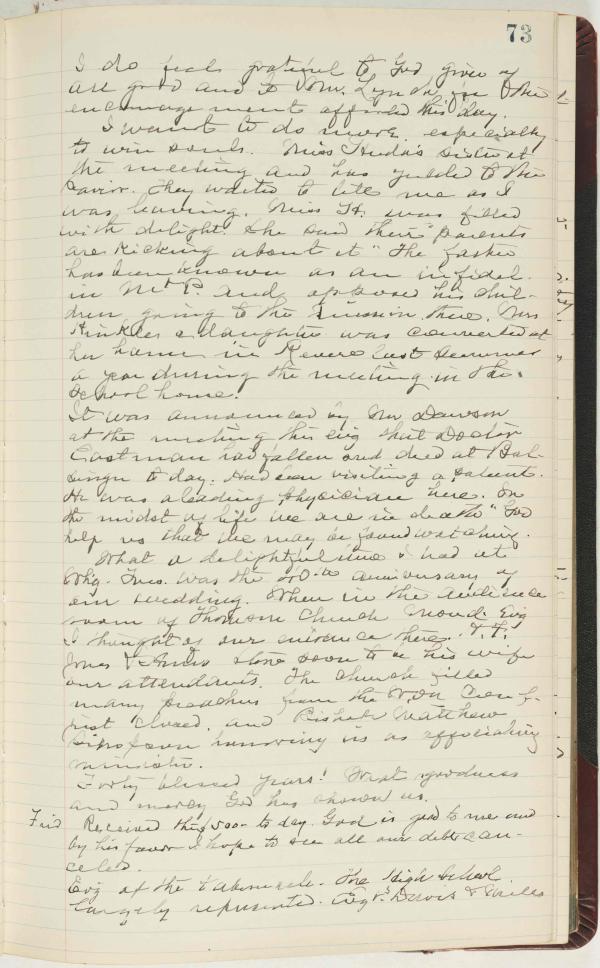 73
I do feel grateful to God giver of
all good and to Mr. Lynda for the
encouragement afforded this day.
I want to do more, especially
to win souls. Miss Huda's sister at
the meeting and has yielded to the
Savior. They waited to tell me as I
was leaving. Miss H. was filled
with delight. She said their "parents
are kicking about it" The father
has been known as an infidel
in Mt P. and opposed his chil-
dren going to the mission there. Mrs
Hinkles daughter was converted at
her home in Revere last summer
a year during the meeting in the
School house.
It was announced by Mr Dawson
at the meeting this evg that Doctor
Eastman had fallen and died at
to day. Had been visiting a patient.
He was a leading physician here. "In
the midst of life we are in death" God
help us that we may be found watching.
What a delightful time I had at
Whg. Tues. was the 40th anniversary of
our wedding. When in the audience
room of Thomson Church Mond. Evg
I thought of our entrance there. T. H.
Jones & soon to be his wife
our attendants. The Church filled
many preachers from the W. Va Conf.
just closed, and Bishop Matthew
Simpson honoring us as officiating
minister.
Forty blessed years! What goodness
and mercy God has shown us.
Frid Received the $500- to day. God is good to me and
by his favor I hope to see all our debts can-
celed.
Evg at the tabernacle. The High School
largely represented. Evgs. Davis & Mills